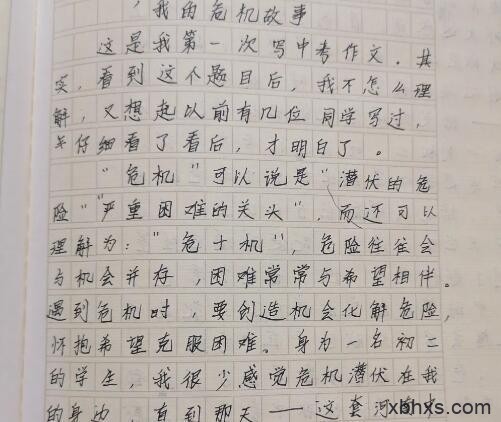 ，我的危机故事
这是我第一次写中考作文．其
实，看到这个题目后，我不怎么理
解，又想起以前有几位同学写过，
仔细看了看后，才明白了。
"危机"可以说是"潜伏的危
险""严重困难的关头"，而还可以
理解为："危十机"，危险往往会
与机会并存，困难常常与希望相伴。
遇到危机时，要创造机会化解危险，
怀抱希望克服困难。身为一名初二
的学生，我很少感觉危机潜伏在我
的身边，直到那天——这套河
xbhxs.com